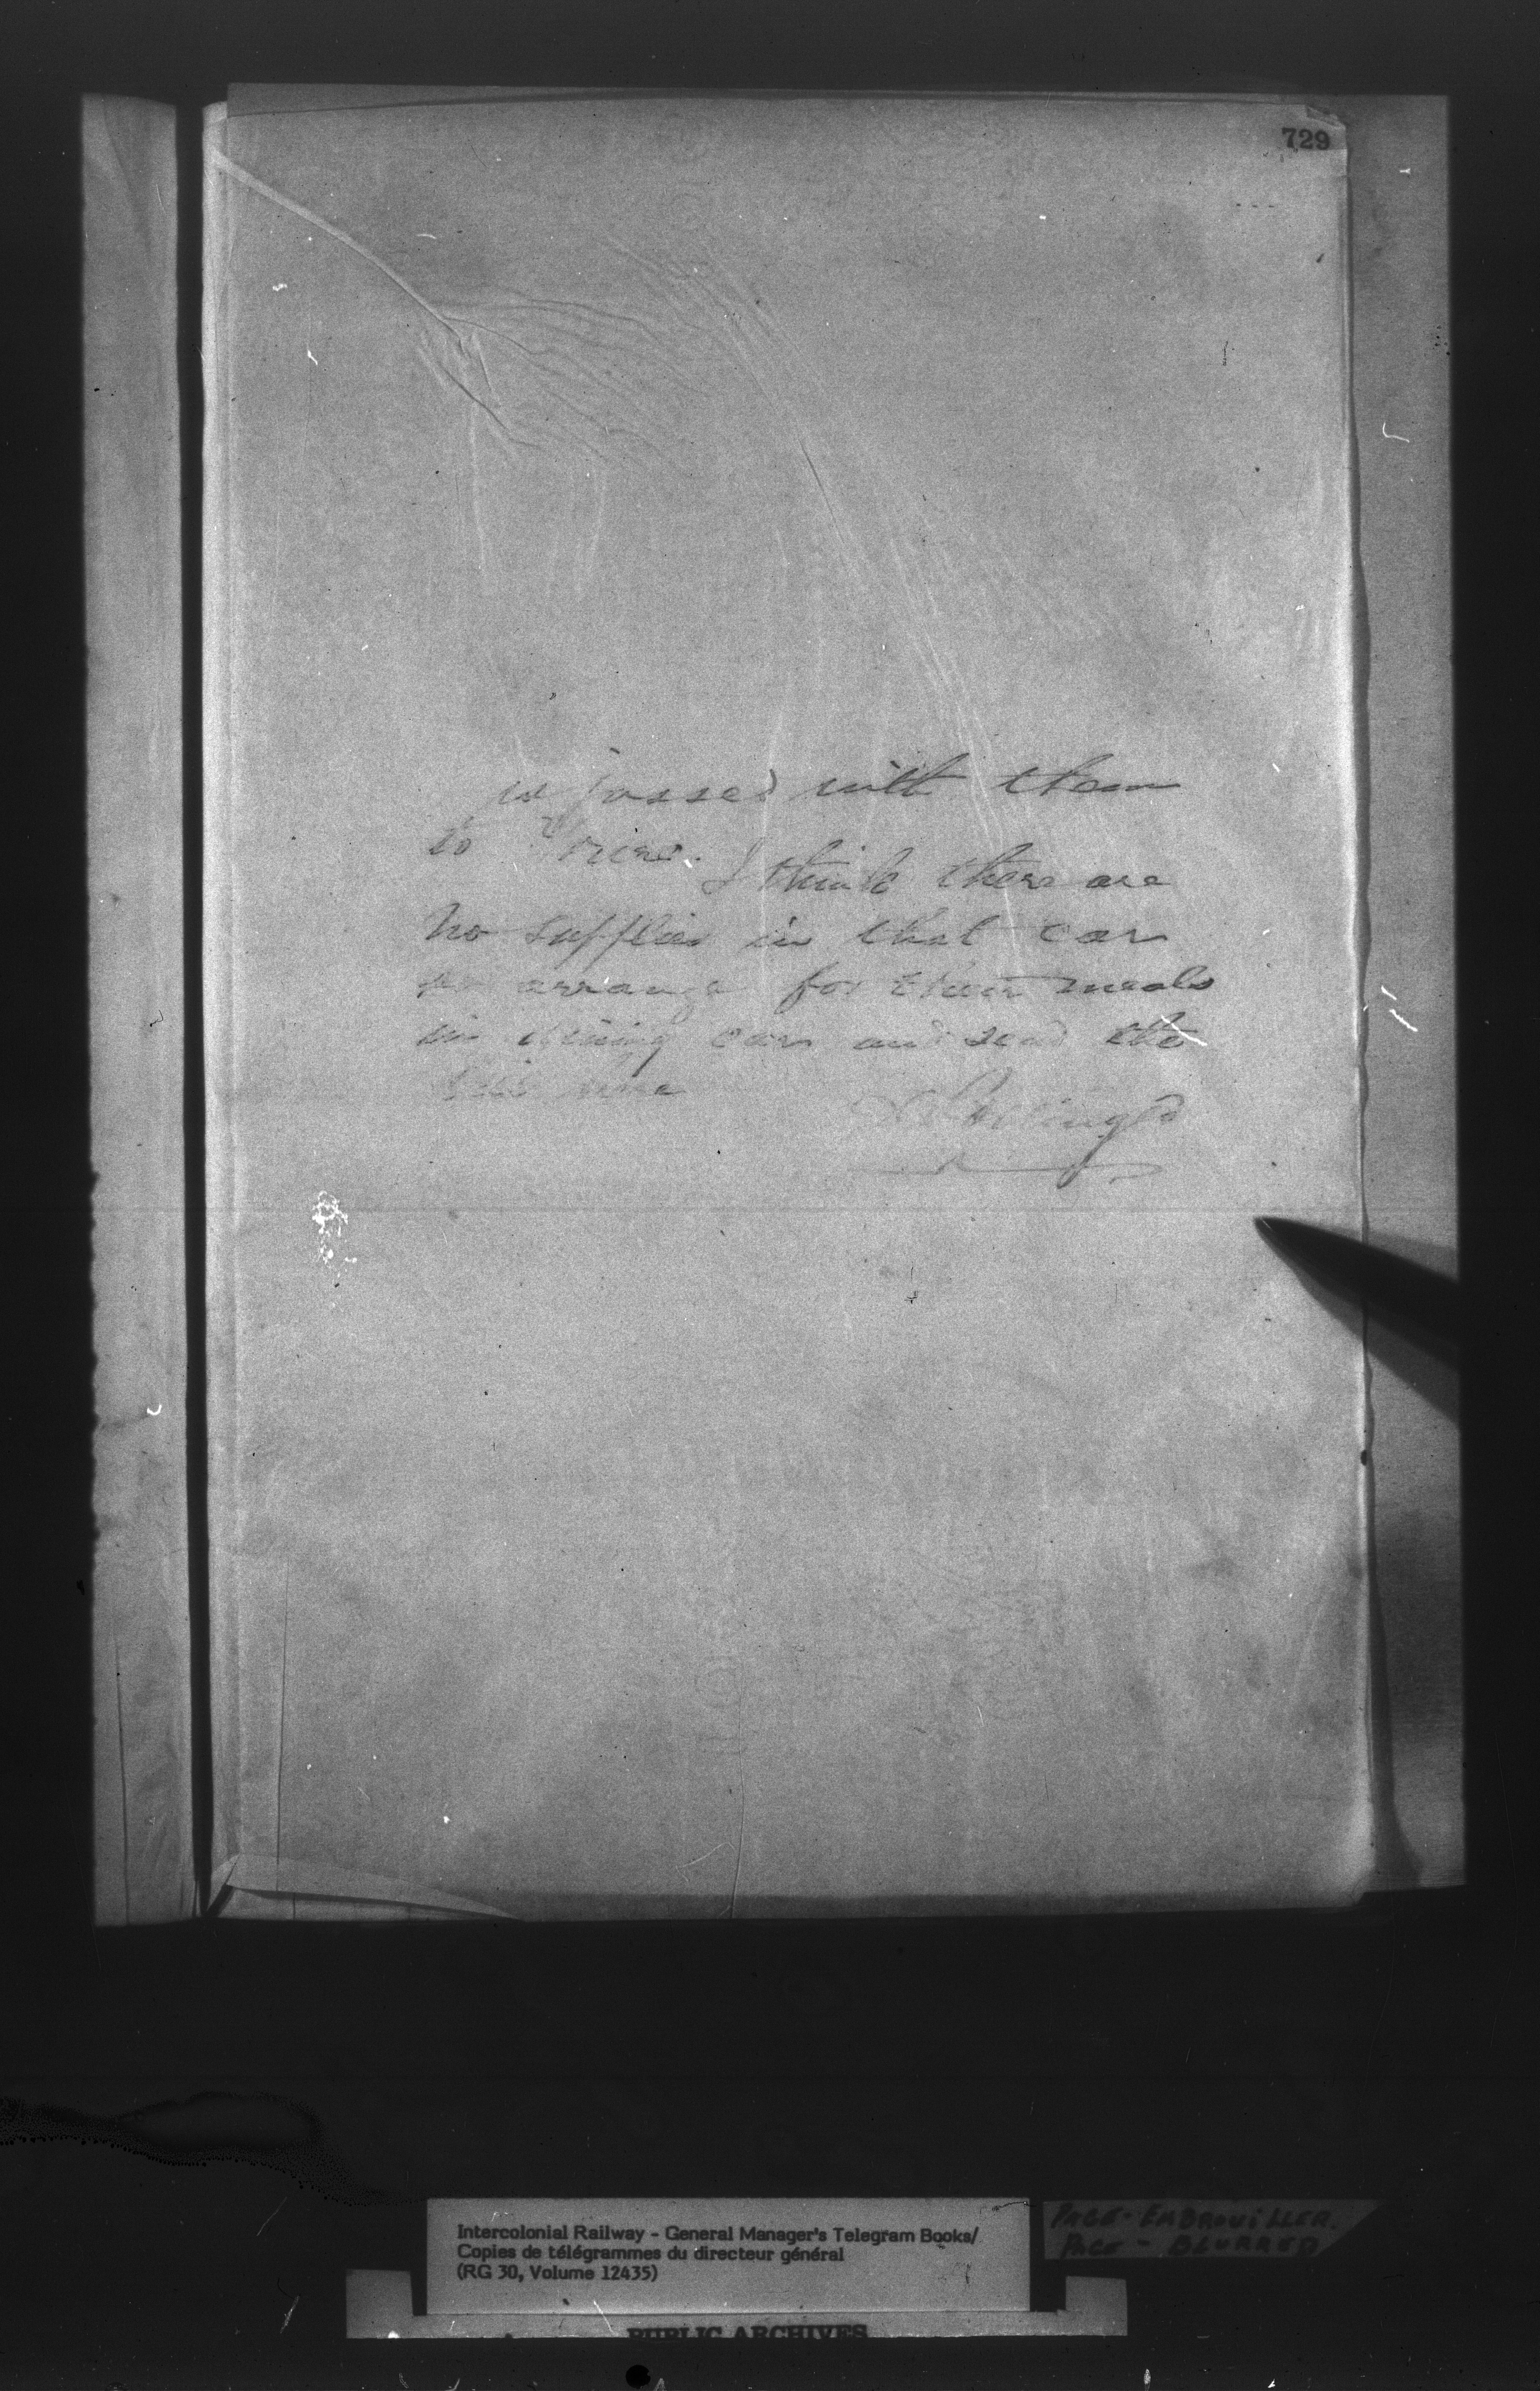 729
is passed with them
to
I think there are
no supplies in that car
so arrange for their meals
in dining car and send the
D Pottinger
Intercolonial Railway - General Manager's Telegram Books/
Copies de télégrammes du directeur général
(RG 30, Volume 12435)
PAGE - EMBROUILLER.
PAGE - BLURRED
PUBLIC ARCHIVES